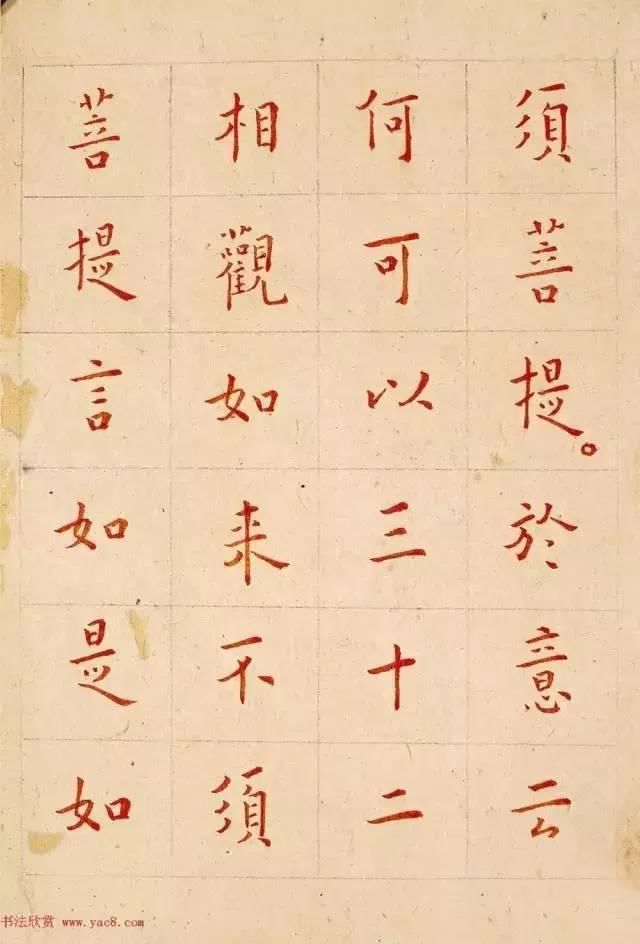 須菩提。於意云
何可以三十二
相觀如来不須
菩提言如是如
书法欣赏 www.yac8.com